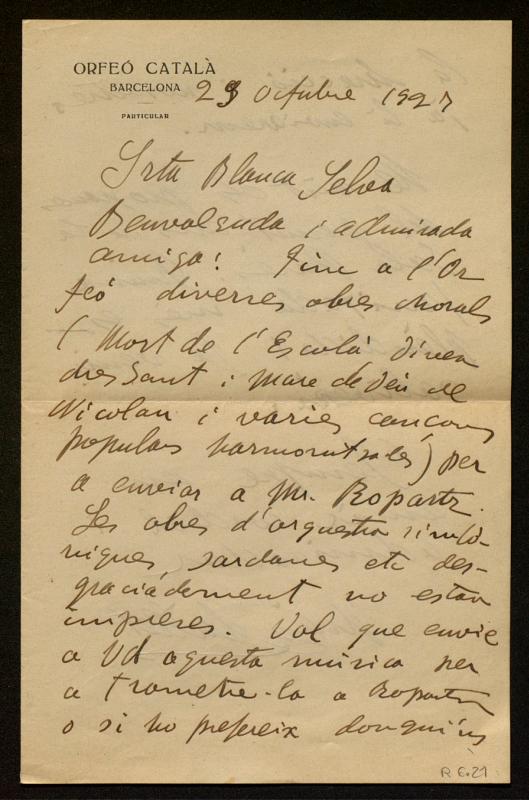 ORFEÓ CATALÀ
BARCELONA
PARTICULAR
23 Octubre 1927
Srta Blanca Selva
Benvolguda i admirada
amiga: Tinc a l'Or
feó diverses obres chorals
( Mort de l'Escolà Diven
dres Sant i Mare de Deu de
Nicolau i varies cançons
populars harmonitzades) per
a enviar a Mr. Ropartz.
Les obres d'orquestra simfò-
niques, sardanes etc des-
graciadament no estan
impreses. Vol que envie
a Vd aquesta música per
a trametre-la a Ropartz
o si ho prefereix donguim
R 6.21